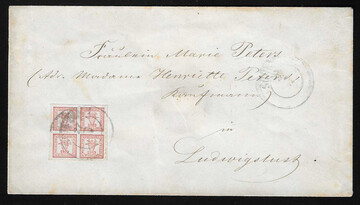 Fräulein Marie Peters
(Adr. Madame Henriette Peters
Kaufmann)
in
Ludwigslust